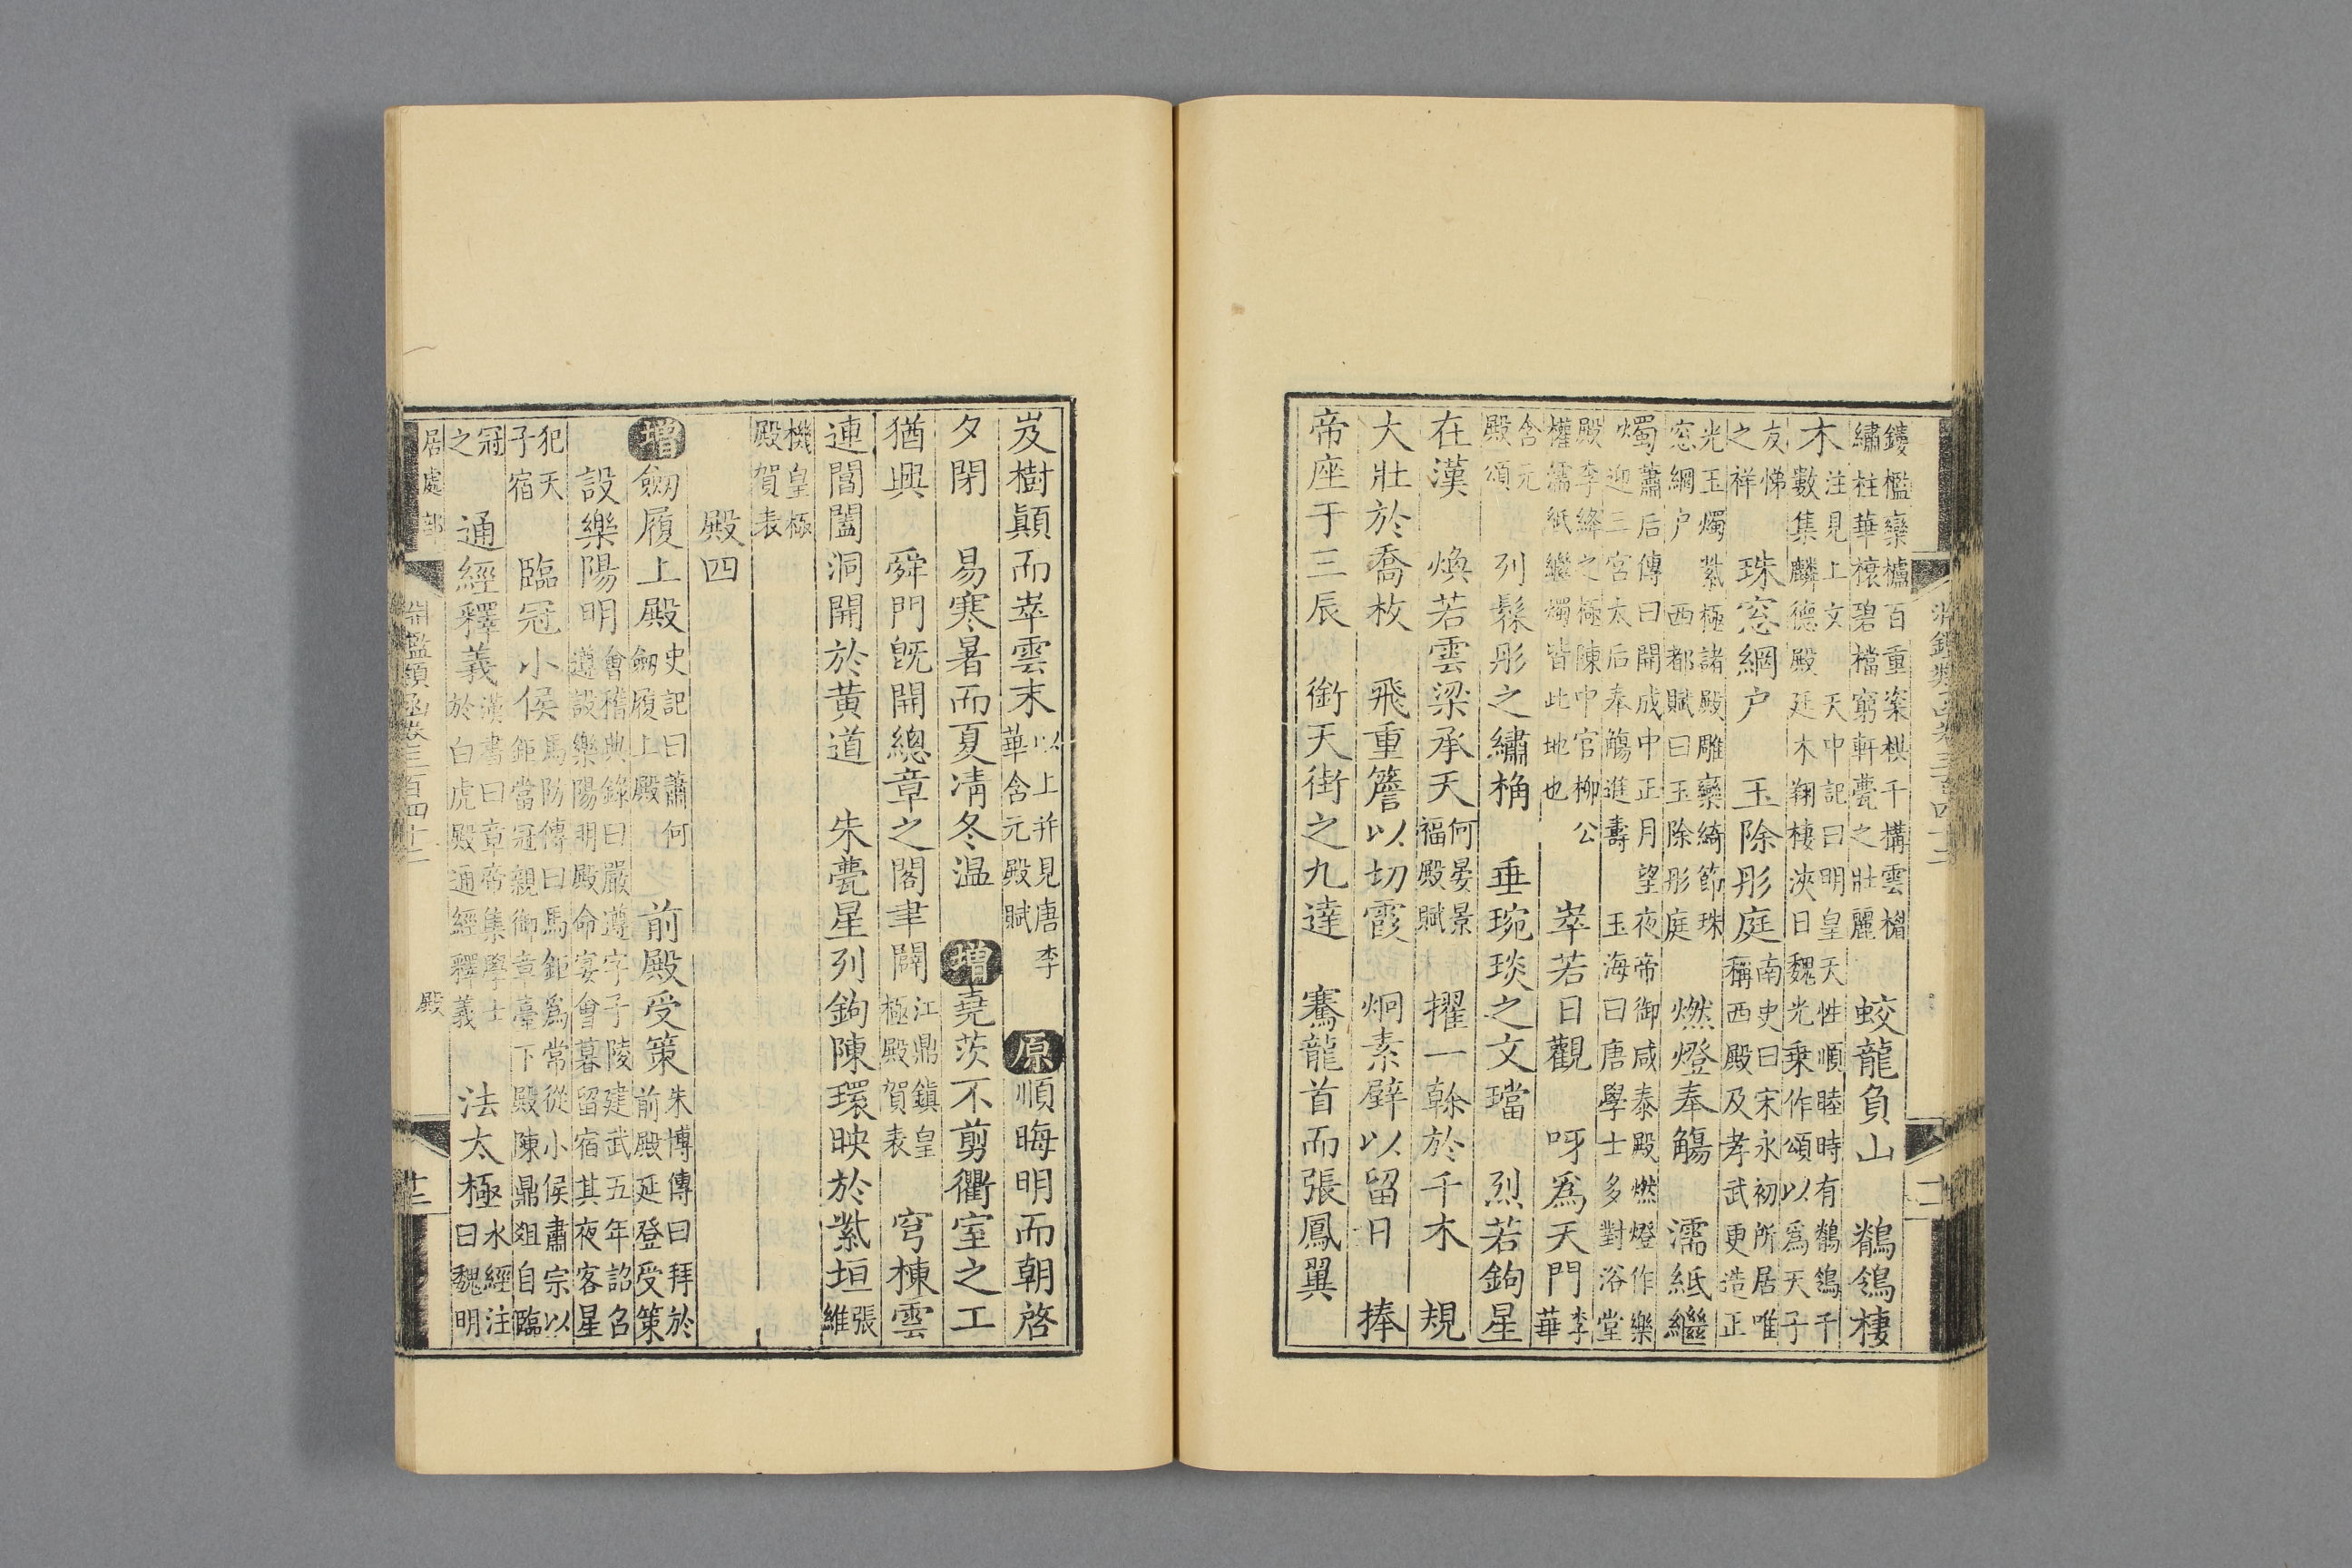 鏤檻欒櫨百重楶栱千構雲楣
繡柱華榱碧檔窮軒甍之壯麗
蛟龍負山　鶺鴒棲
木
注見上文　天中記曰明皇天性順睦時有鶺鴒千
數集麟德殿廷木翔棲浹日魏光乗作頌以爲天子
友悌
之祥
珠窓網户　玉除彤庭
南史曰宋永初所居唯
稱西殿及孝武更造正
光玉燭紫極諸殿雕欒綺節珠
窓網户　西都賦曰玉除彤庭
燃燈奉觴　濡紙繼
燭
蕭后傳曰開成中正月望夜帝御咸泰殿燃燈作樂
迎三宮太后奉觴進壽　玉海曰唐學士多對浴堂
殿李絳之極陳中官柳公
權濡紙繼燭皆此地也
崒若日觀　呀爲天門
李
華
含元
殿頌
列髹彤之繡桷　垂琬琰之文璫　烈若鉤星
在漢　煥若雲梁承天
何晏景
福殿賦
擢一榦於千木　規
大壯於喬枚　飛重簷以切霞　炯素壁以留日　捧
帝座于三辰　銜天街之九逵　騫龍首而張鳳翼
岌樹顛而崒雲末
以上并見唐李
華含元殿賦
原順晦明而朝啓
夕閉　易寒暑而夏凊冬温　增堯茨不剪衢室之工
猶興　舜門旣開總章之閣聿闢
江鼎鎮皇
極殿賀表
穹棟雲
連閶闔洞開於黄道　朱甍星列鉤陳環映於紫垣
張
維
機皇極
殿賀表
殿四
增劒履上殿
史記曰蕭何
劒履上殿
前殿受策
朱博傳曰拜於
前殿延登受策
設樂陽明
會稽典錄曰嚴遵字子陵建武五年詔召
遵設樂陽明殿命宴會暮留宿其夜客星
犯天
子宿
臨冠小侯
馬防傳曰馬鉅爲常從小侯肅宗以
鉅當冠親御章臺下殿陳鼎俎自臨
冠
之
通經釋義
漢書曰章帝集學士
於白虎殿通經釋義
法太極
水經注
曰魏明
居處部
淵鑑類函卷三百四十二
殿
十二